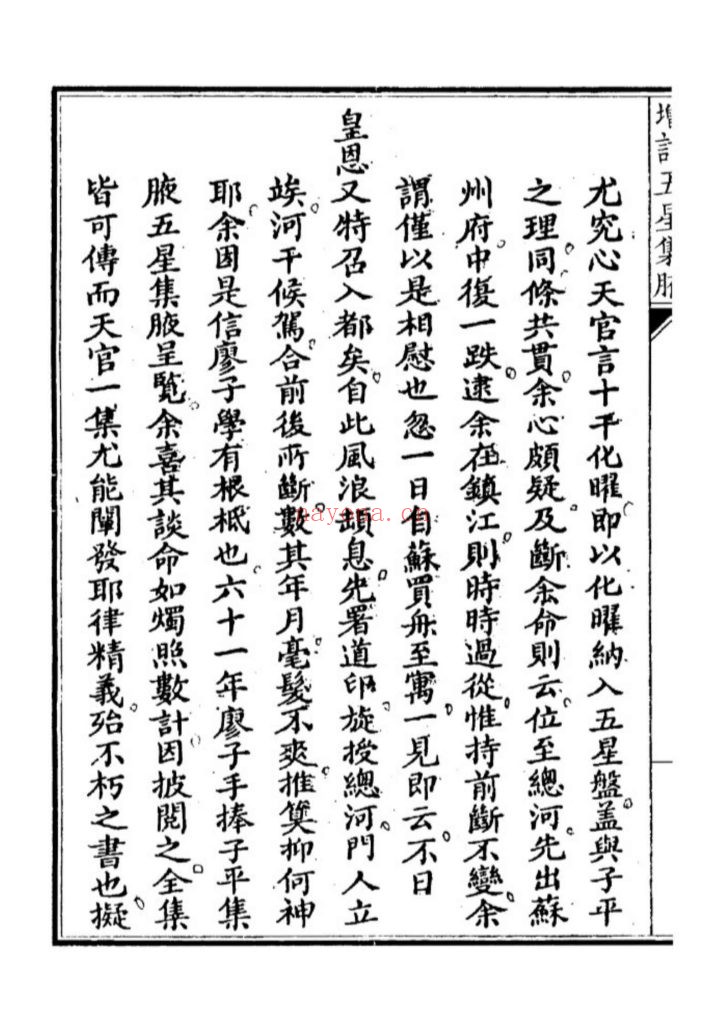 增訂五星集腋
尤究心天官言十干化曜即以化曜納入五星盤盖與子平
之理同條共貫余心頗疑及斷余命則云位至總河先出蘇
州府中復一跌逮余在鎮江則時時過從惟持前斷不變余
謂僅以是相慰也忽一日自蘇買舟至寓一見即云不日
皇恩又特召入都矣自此風浪頓息先署道印旋授總河門人立
竢河干候駕合前後所斷數其年月毫髮不爽推算抑何神
耶余因是信廖子學有根柢也六十一年廖子手捧子平集
腋五星集腋呈覧余喜其談命如燭照數計因披閱之全集
皆可傳而天官一集尤能闡發耶律精義殆不朽之書也擬
nayona.cn